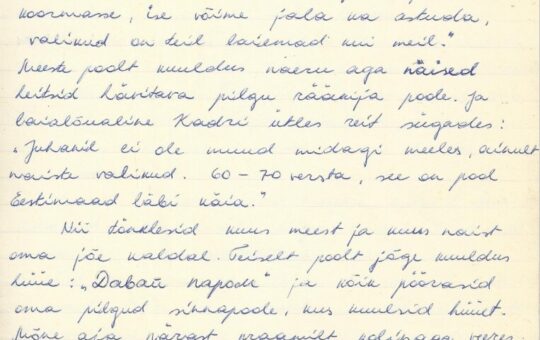 koormasse, ise võime jala ka astuda,
valikud on teil laiemad kui meil."
Meeste poolt kuuldus naeru aga näised
heitsid hävitava pilgu rääkija poole. Ja
laialõualine Kadri ütles reit sügades:
"Juhanil ei ole muud midagi meeles, ainult
naiste valikud. 60 - 70 versta, see on pool
Eestimaad läbi käia."
Nii tönklesid kuus meest ja kuus naist
oma jõe kaldal. Teiselt poolt jõge kuuldus
hüüe: "Dabai napode" ja kõik pöörasid
oma pilgud sinnapoole, kus kuulsid hüüet.
Mõne aja pärast praamilt